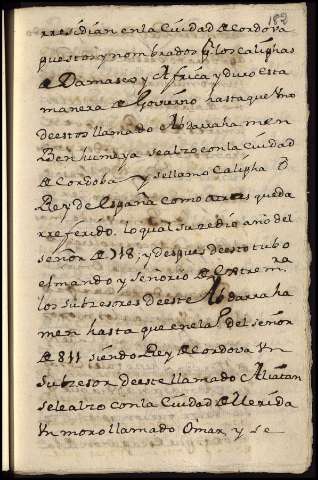 189
rresidian en la Ciudad de Cordova
puestos y nombrados p.r los Caliphas
de Damasco y Africa y duro esta
manera de Govierno hasta que Vno
de estos llamado Abdarrahamen
Ben humaya se alzo con la Ciudad
de Cordoba y se llamo Calipha ô
Rey de España como atras queda
rreferido, lo qual suzedio año del
señor de 718; y despues de esto tubo
el mando y señorio de Extrem.ra
los subzesores de este Abdarraha
men hasta que en el a.o del señor
de 811 siendo Rey de Cordova Vn
subzesor de este llamado Aliatan
se le alzo con la Ciudad de Merida
Vn moro llamado Omar y se